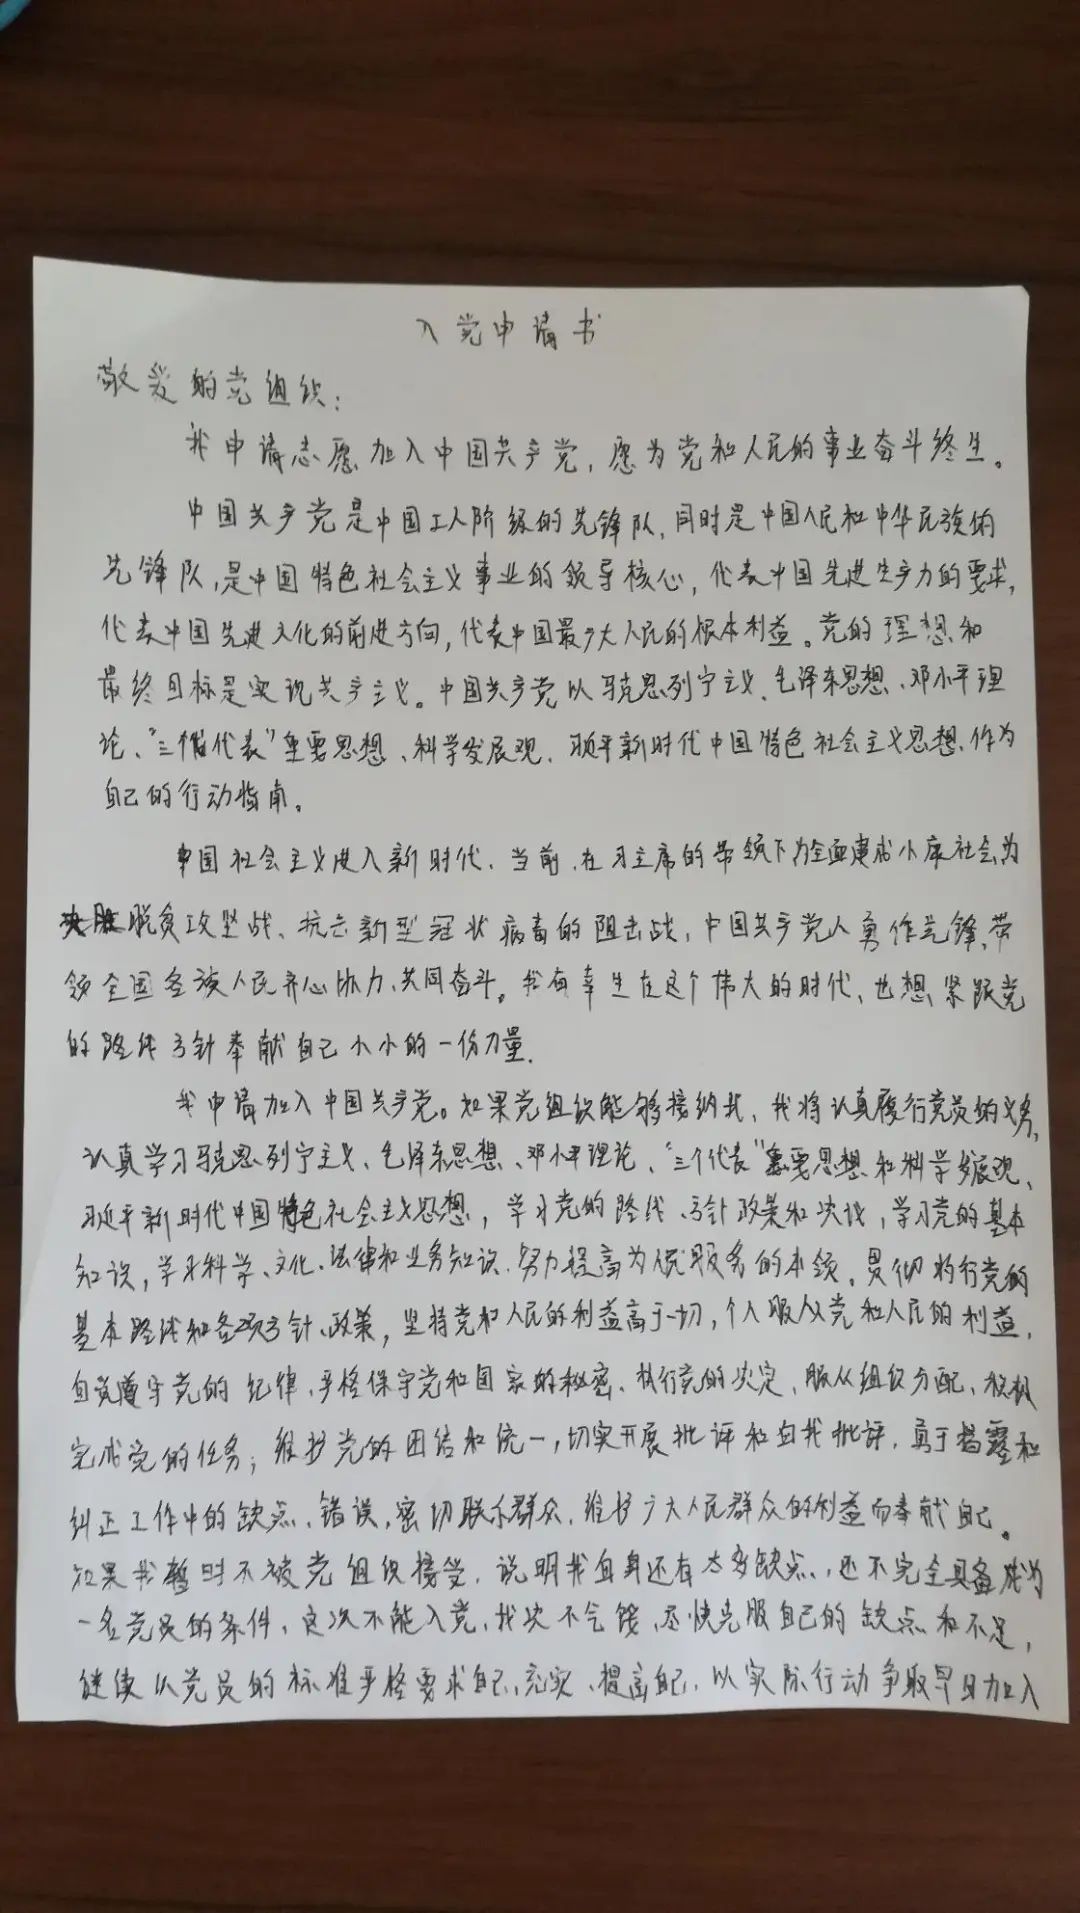 入党申请书
敬爱的党组织：
我申请志愿加入中国共产党，愿为党和人民的事业奋斗终生。
中国共产党是中国工人阶级的先锋队，同时是中国人民和中华民族的
先锋队，是中国特色社会主义事业的领导核心，代表中国先进生产力的要求，
代表中国先进文化的前进方向，代表中国最广大人民的根本利益。党的理想和
最终目标是实现共产主义。中国共产党以马克思列宁主义、毛泽东思想、邓小平理
论、“三个代表”重要思想、科学发展观、习近平新时代中国特色社会主义思想、作为
自己的行动指南。
中国社会主义进入新时代、当前、在习主席的带领下为全面建成小康社会、为
决胜脱贫攻坚战、抗击新型冠状病毒的阻击战，中国共产党人勇作先锋、带
领全国各族人民齐心协力、共同奋斗。我有幸生在这个伟大的时代、也想紧跟党
的路线方针奉献自己小小的一份力量.
我申请加入中国共产党。如果党组织能够接纳我、我将认真履行党员的义务，
认真学习马克思列宁主义、毛泽东思想、邓小平理论、“三个代表”重要思想和科学发展观、
习近平新时代中国特色社会主义思想，学习党的路线、方针政策和决议，学习党的基本
知识，学习科学、文化、法律和业务知识、努力提高为人民服务的本领。贯彻执行党的
基本路线和各项方针、政策，坚持党和人民的利益高于一切，个人服从党和人民的利益，
自觉遵守党的纪律、严格保守党和国家的秘密、执行党的决定、服从组织分配、积极
完成党的任务；维护党的团结和统一，切实开展批评和自我批评，勇于揭露和
纠正工作中的缺点、错误，密切联系群众、维护广大人民群众的利益而奉献自己。
如果我暂时不被党组织接受，说明我自身还有太多缺点，还不完全具备成为
一名党员的条件、这次不能入党、我决不气馁、尽快克服自己的缺点和不足，
继续以党员的标准严格要求自己、充实、提高自己、以实际行动争取早日加入